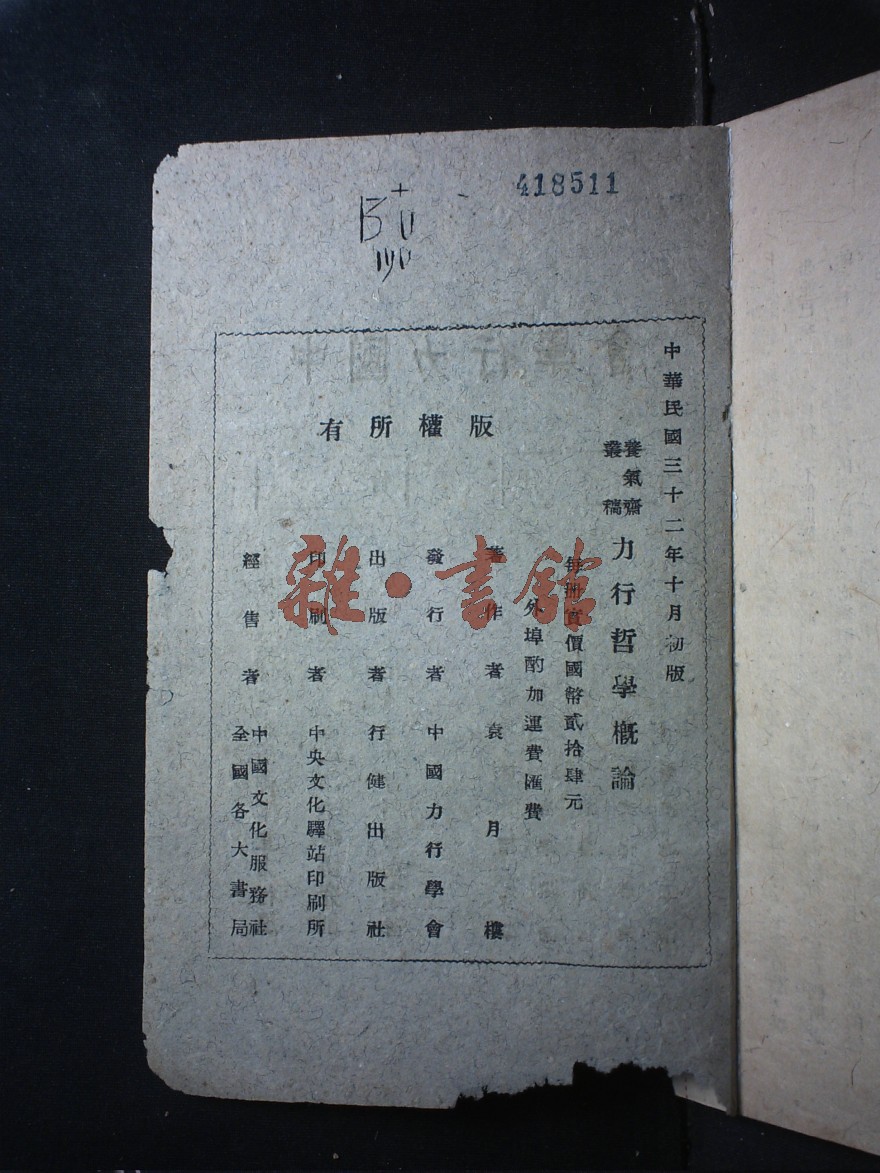 418511
中華民國三十二年十月初版
養氣齋叢稿
力行哲學概論
每冊實價國幣貳拾肆元
外埠酌加運費匯費
版權所有
著作者 袁月樓
發行者 中國力行學會
出版者 行健出版社
印刷者 中央文化驛站印刷所
經售者 中國文化服務社
全國各大書局
雜·書館